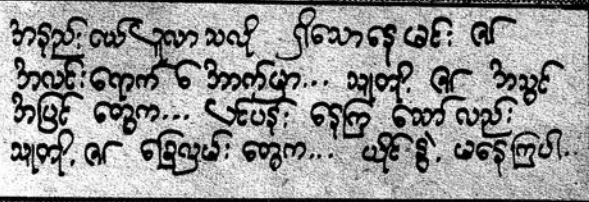 အနည်းငယ် ပူလာသလို ရှိသောနေမင်း ၏
အလင်းရောင် အောက်မှာ... သူတို့ ၏ အသွင်
အပြင် တွေက... ပင်ပန်း နေကြ သော် လည်း
သူတို့ ၏ ခြေလှမ်း တွေက... ယိုင်နွဲ့ မနေကြပါ..